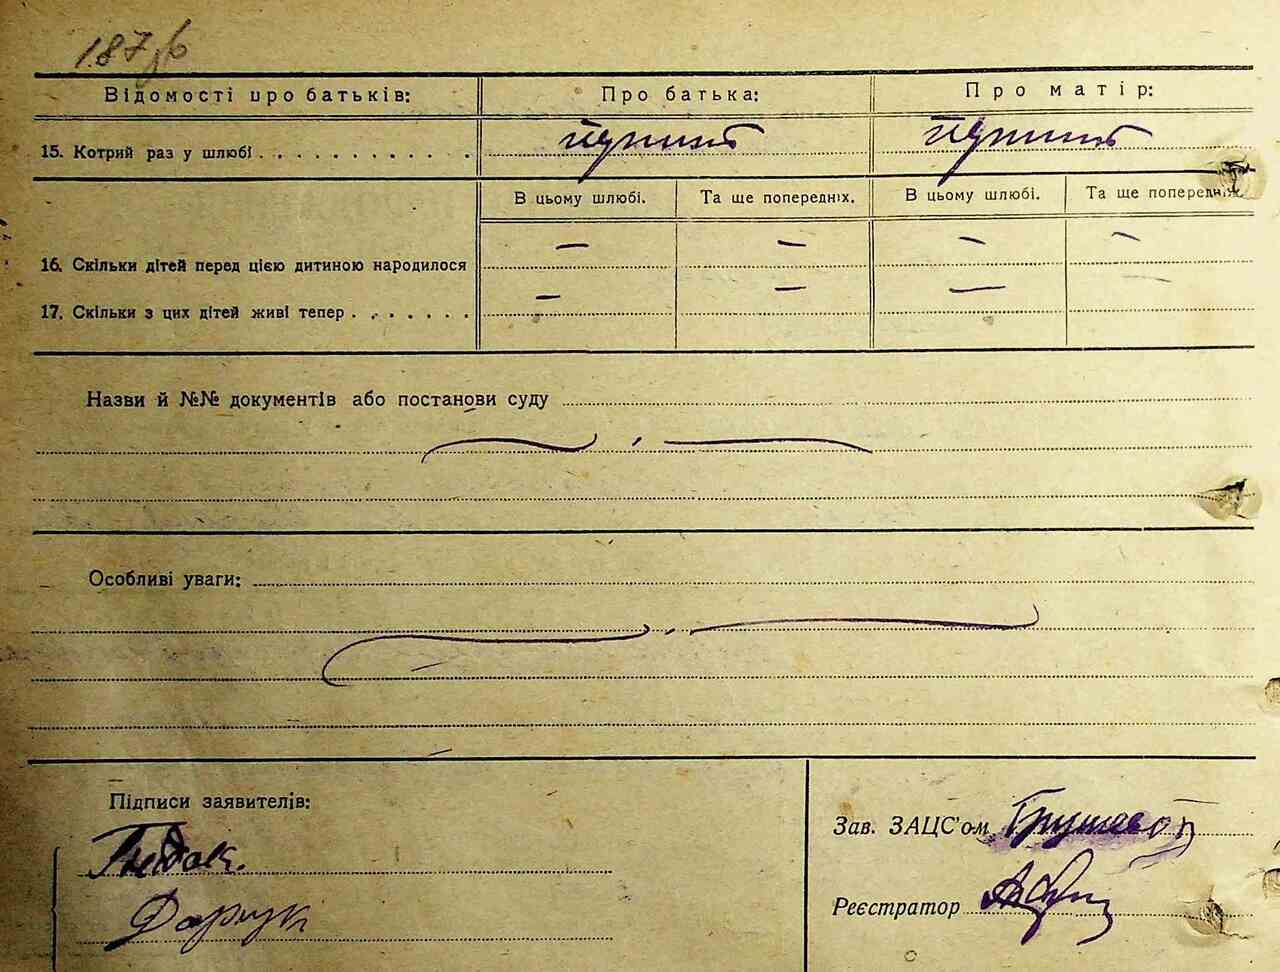 187
Відомості про батьків: Про батька: Про матір:
15. Котрий раз у шлюбі . . . . . . . . . . .
В цьому шлюбі. Та ще попередніх. В цьому шлюбі. Та ще попередніх.
16. Скільки дітей перед цією дитиною народилося — — — —
17. Скільки з цих дітей живі тепер . . . . . . . — — — —
Назви й №№ документів або постанови суду
Особливі уваги:
Підписи заявителів:
Зав. ЗАЦС'ом
Реєстратор